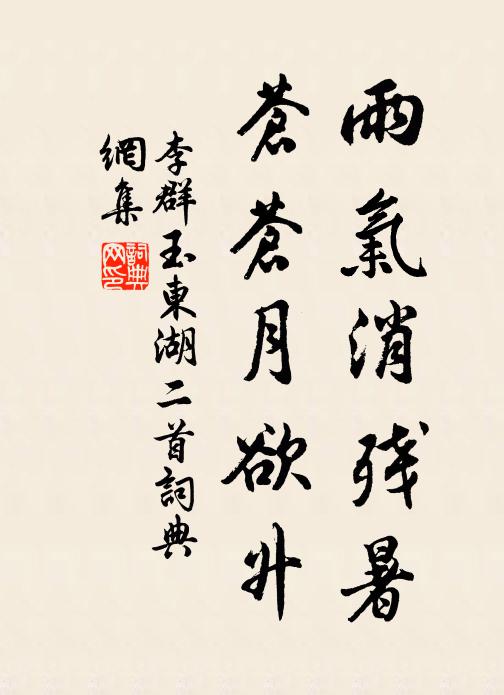 雨氣消残暑
蒼蒼月欲升
李群玉東湖二首詞典
網集
詞典
网印